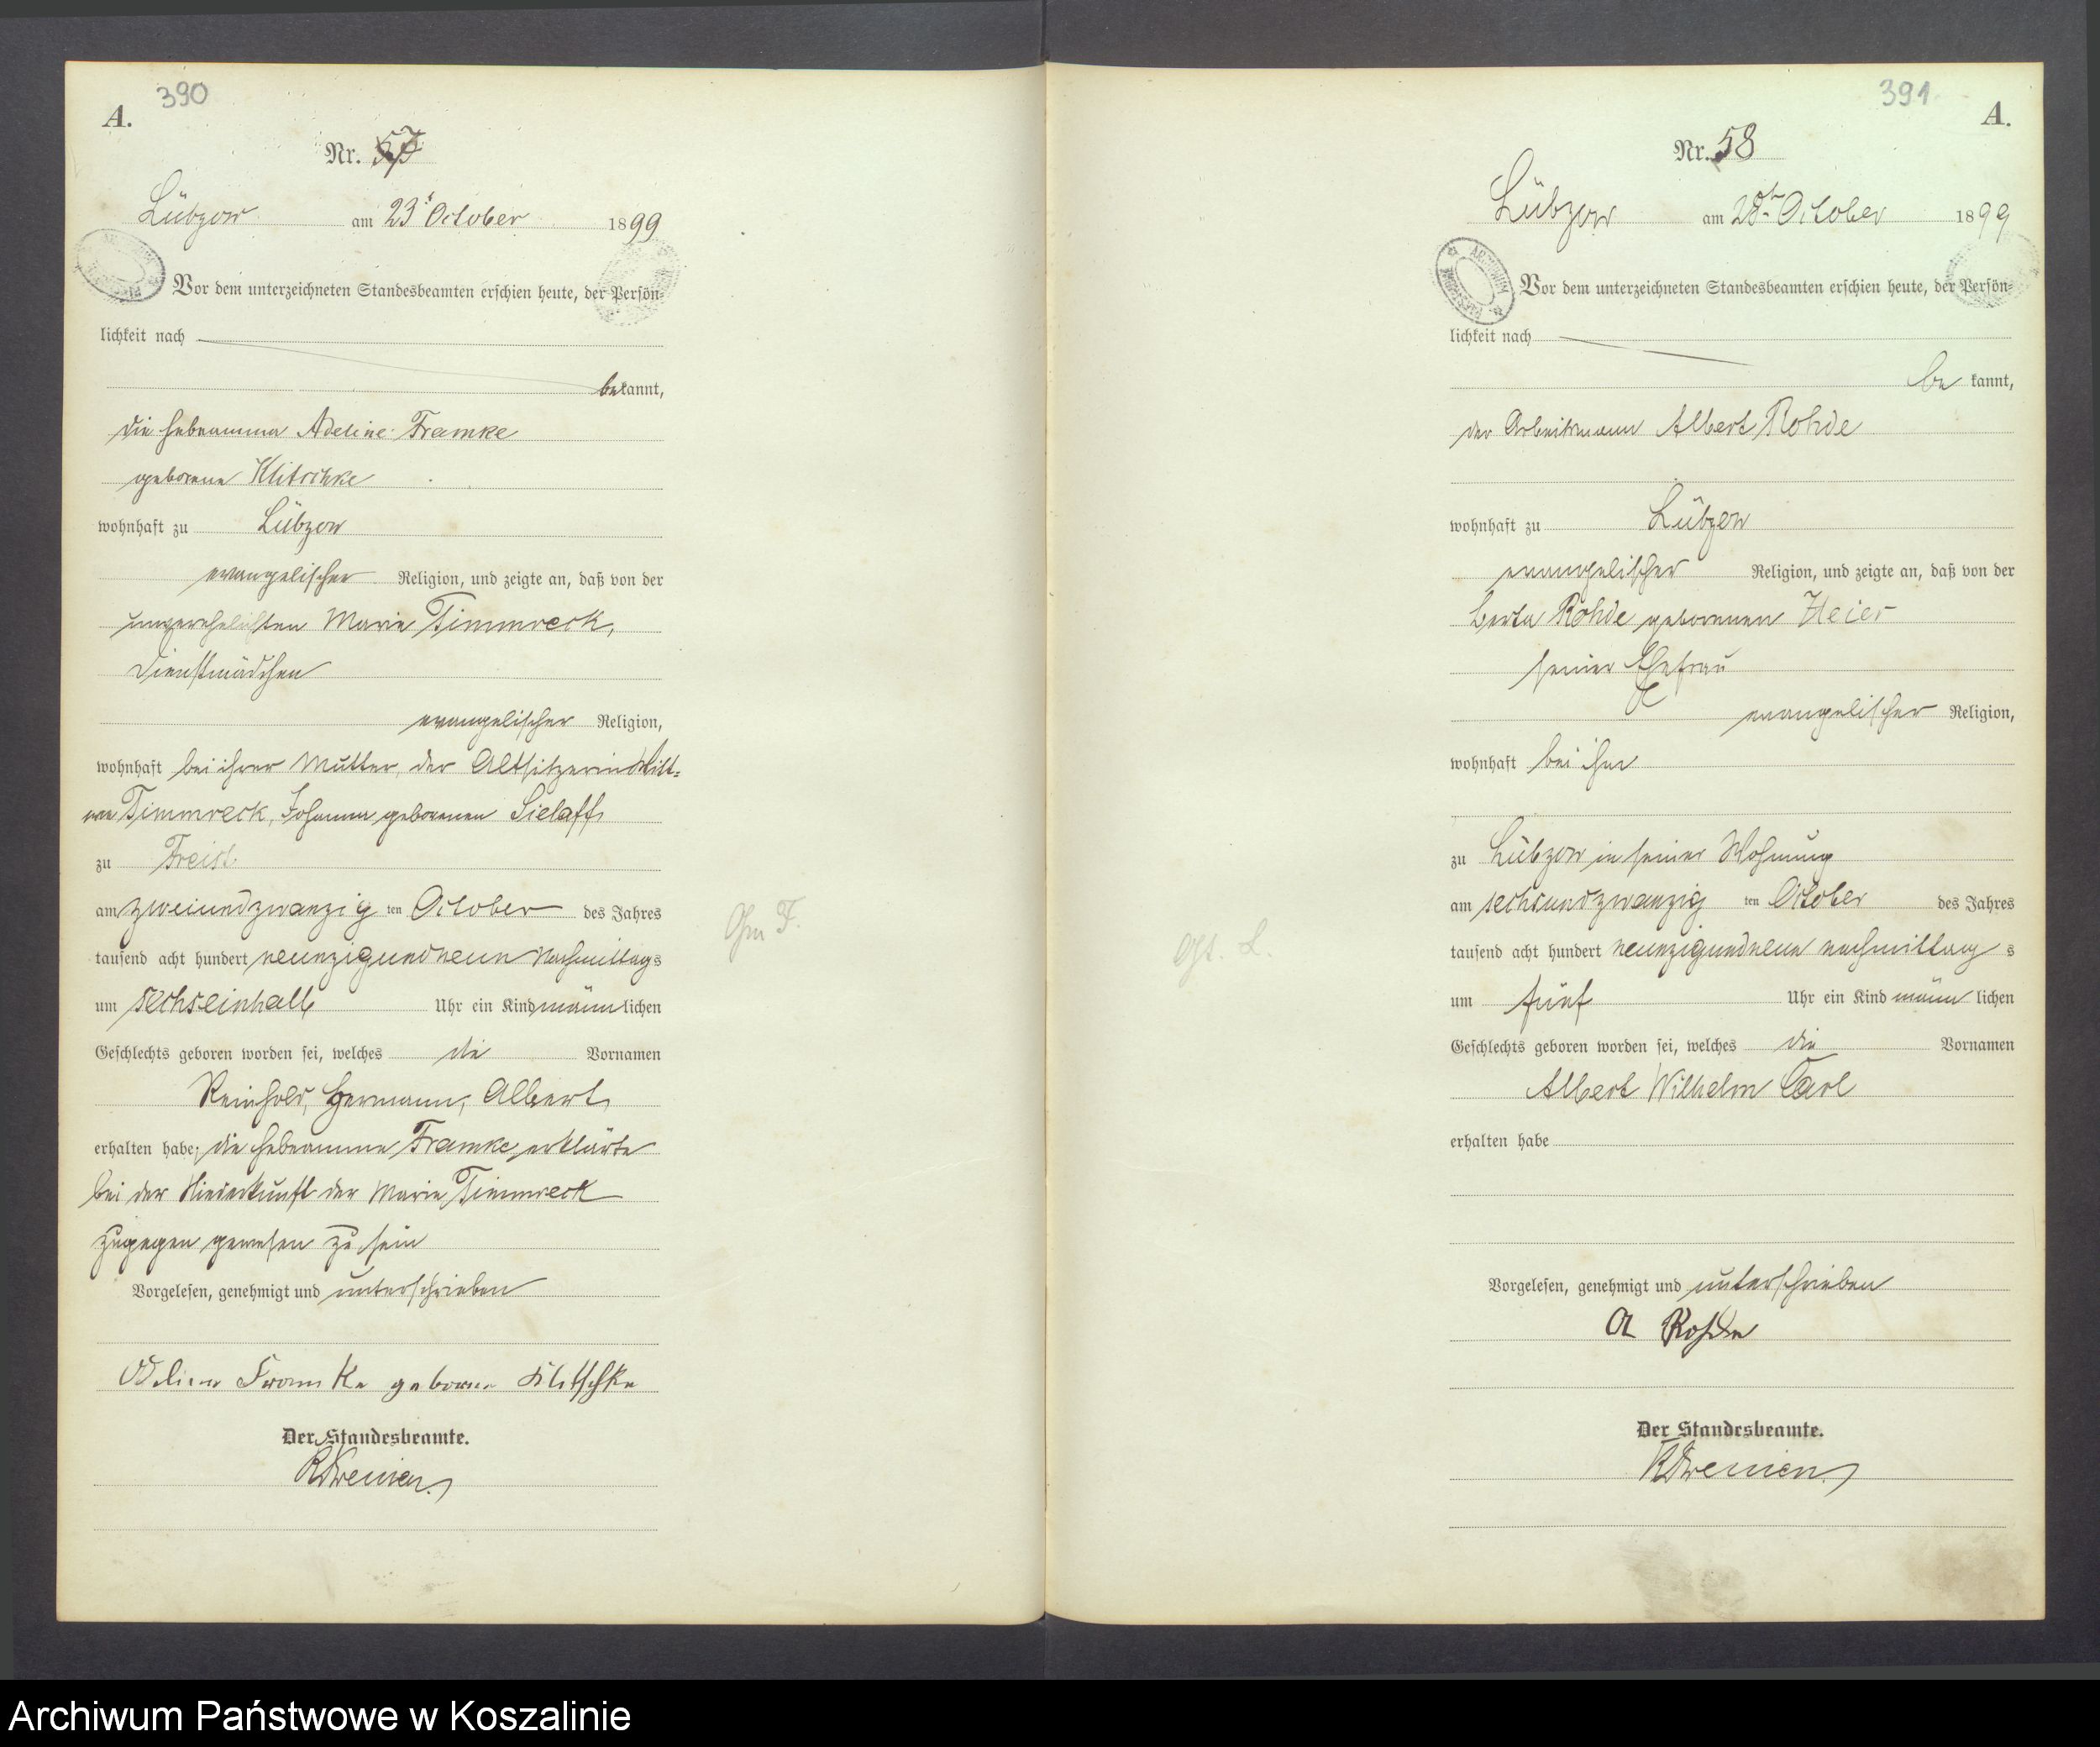 390
A.
Nr. 57
Lübzow am 23t October 1899
Vor dem unterzeichneten Standesbeamten erschien heute, der Persön-
lichkeit nach
bekannt,
die Hebeamme Adeline Framke
geborene Klitschke
wohnhaft zu Lübzow
evangelischer Religion, und zeigte an, daß von der
unverehelichten Marie Timmreck,
Dienstmädchen
evangelischer Religion,
wohnhaft bei ihrer Mutter, der Altsitzerin Witt-
we Timmreck, Johanna geborenen Sielaff,
zu Freist.
am zweiundzwanzig ten October des Jahres
tausend acht hundert neunzigundneun Nachmittags
um sechseinhalb Uhr ein Kind männlichen
Geschlechts geboren worden sei, welches die Vornamen
Reinhold, Hermann, Albert,
erhalten habe; die Hebeamme Framke erklärte
bei der Niederkunft der Marie Timmreck
zugegen gewesen zu sein
Vorgelesen, genehmigt und unterschrieben
Adeline Framke geborne Klitschke
Der Standesbeamte.
391
A.
Nr. 58
Lübzow am 28ten October 1899
ARCHIWUM
Vor dem unterzeichneten Standesbeamten erschien heute, der Persön-
lichkeit nach
be kannt,
der Arbeitsmann Albert Rohde
wohnhaft zu Lübzow
evangelischer Religion, und zeigte an, daß von der
Berta Rohde geborenen Heier
seiner Ehefrau
evangelischer Religion,
wohnhaft bei ihm
zu Lübzow in seiner Wohnung
am sechsundzwanzig ten October des Jahres
tausend acht hundert neunzigundneun nachmittag s
um fünf Uhr ein Kind männ lichen
Geschlechts geboren worden sei, welches die Vornamen
Albert Wilhelm Carl
erhalten habe
Vorgelesen, genehmigt und unterschrieben
A Rohde
Der Standesbeamte.
Archiwum Państwowe w Koszalinie